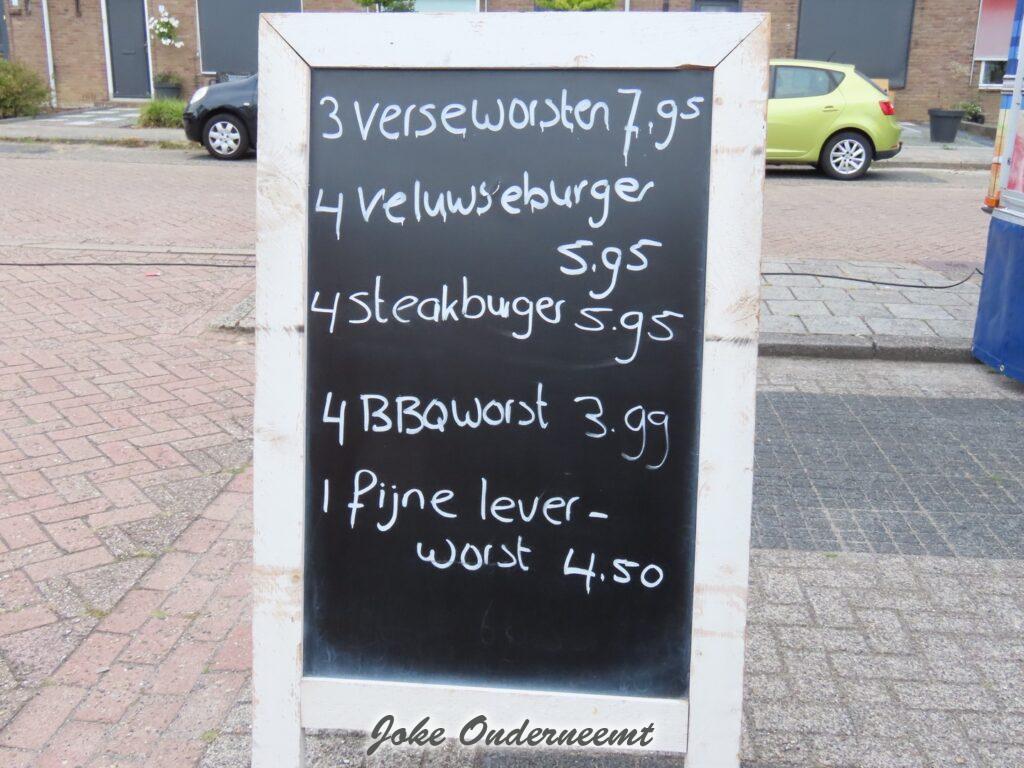 3 verseworsten 7.95
4 veluwseburger
5.95
4 steakburger 5.95
4 BBQworst 3.99
1 fijne lever-
worst 4.50
Joke Onderneemt